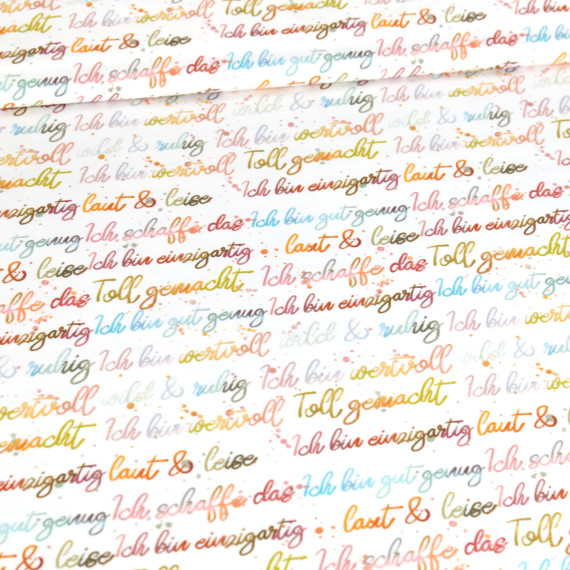 wertvoll Toll gemacht
einzigartig laut & leise Ich bin
gut genug Ich schaffe das Ich bin gut genug Ich schaffe das
& ruhig Ich bin wertvoll wild & ruhig Ich bin wertvoll
wertvoll wild & ruhig Ich bin wertvoll wild & ruhig
gemacht Ich bin wertvoll Toll gemacht Ich bin
einzigartig laut & leise Ich bin einzigartig laut & leise
gut genug Ich schaffe das Ich bin gut genug Ich schaffe das
& leise Ich bin einzigartig laut & leise Ich bin einzigartig
schaffe das Toll gemacht Ich schaffe das Toll gemacht
einzigartig Ich bin gut genug Ich bin einzigartig Ich bin gut
& ruhig Ich bin wertvoll wild & ruhig Ich bin
wertvoll wild & ruhig Ich bin wertvoll wild &
gemacht Ich bin wertvoll Toll gemacht Ich bin
einzigartig laut & leise Ich bin einzigartig laut &
gut genug Ich schaffe das Ich bin gut genug Ich
& leise Ich bin einzigartig laut & leise Ich bin
das Toll gemacht Ich schaffe das Toll